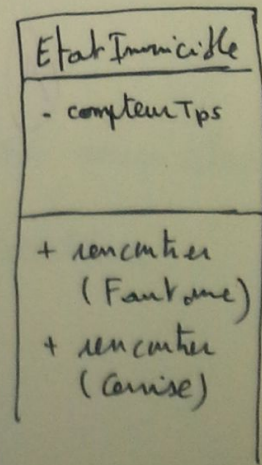 EtatInvincible
- compteurTps
+ rencontrer
(Fantome)
+ rencontrer
(Cerise)